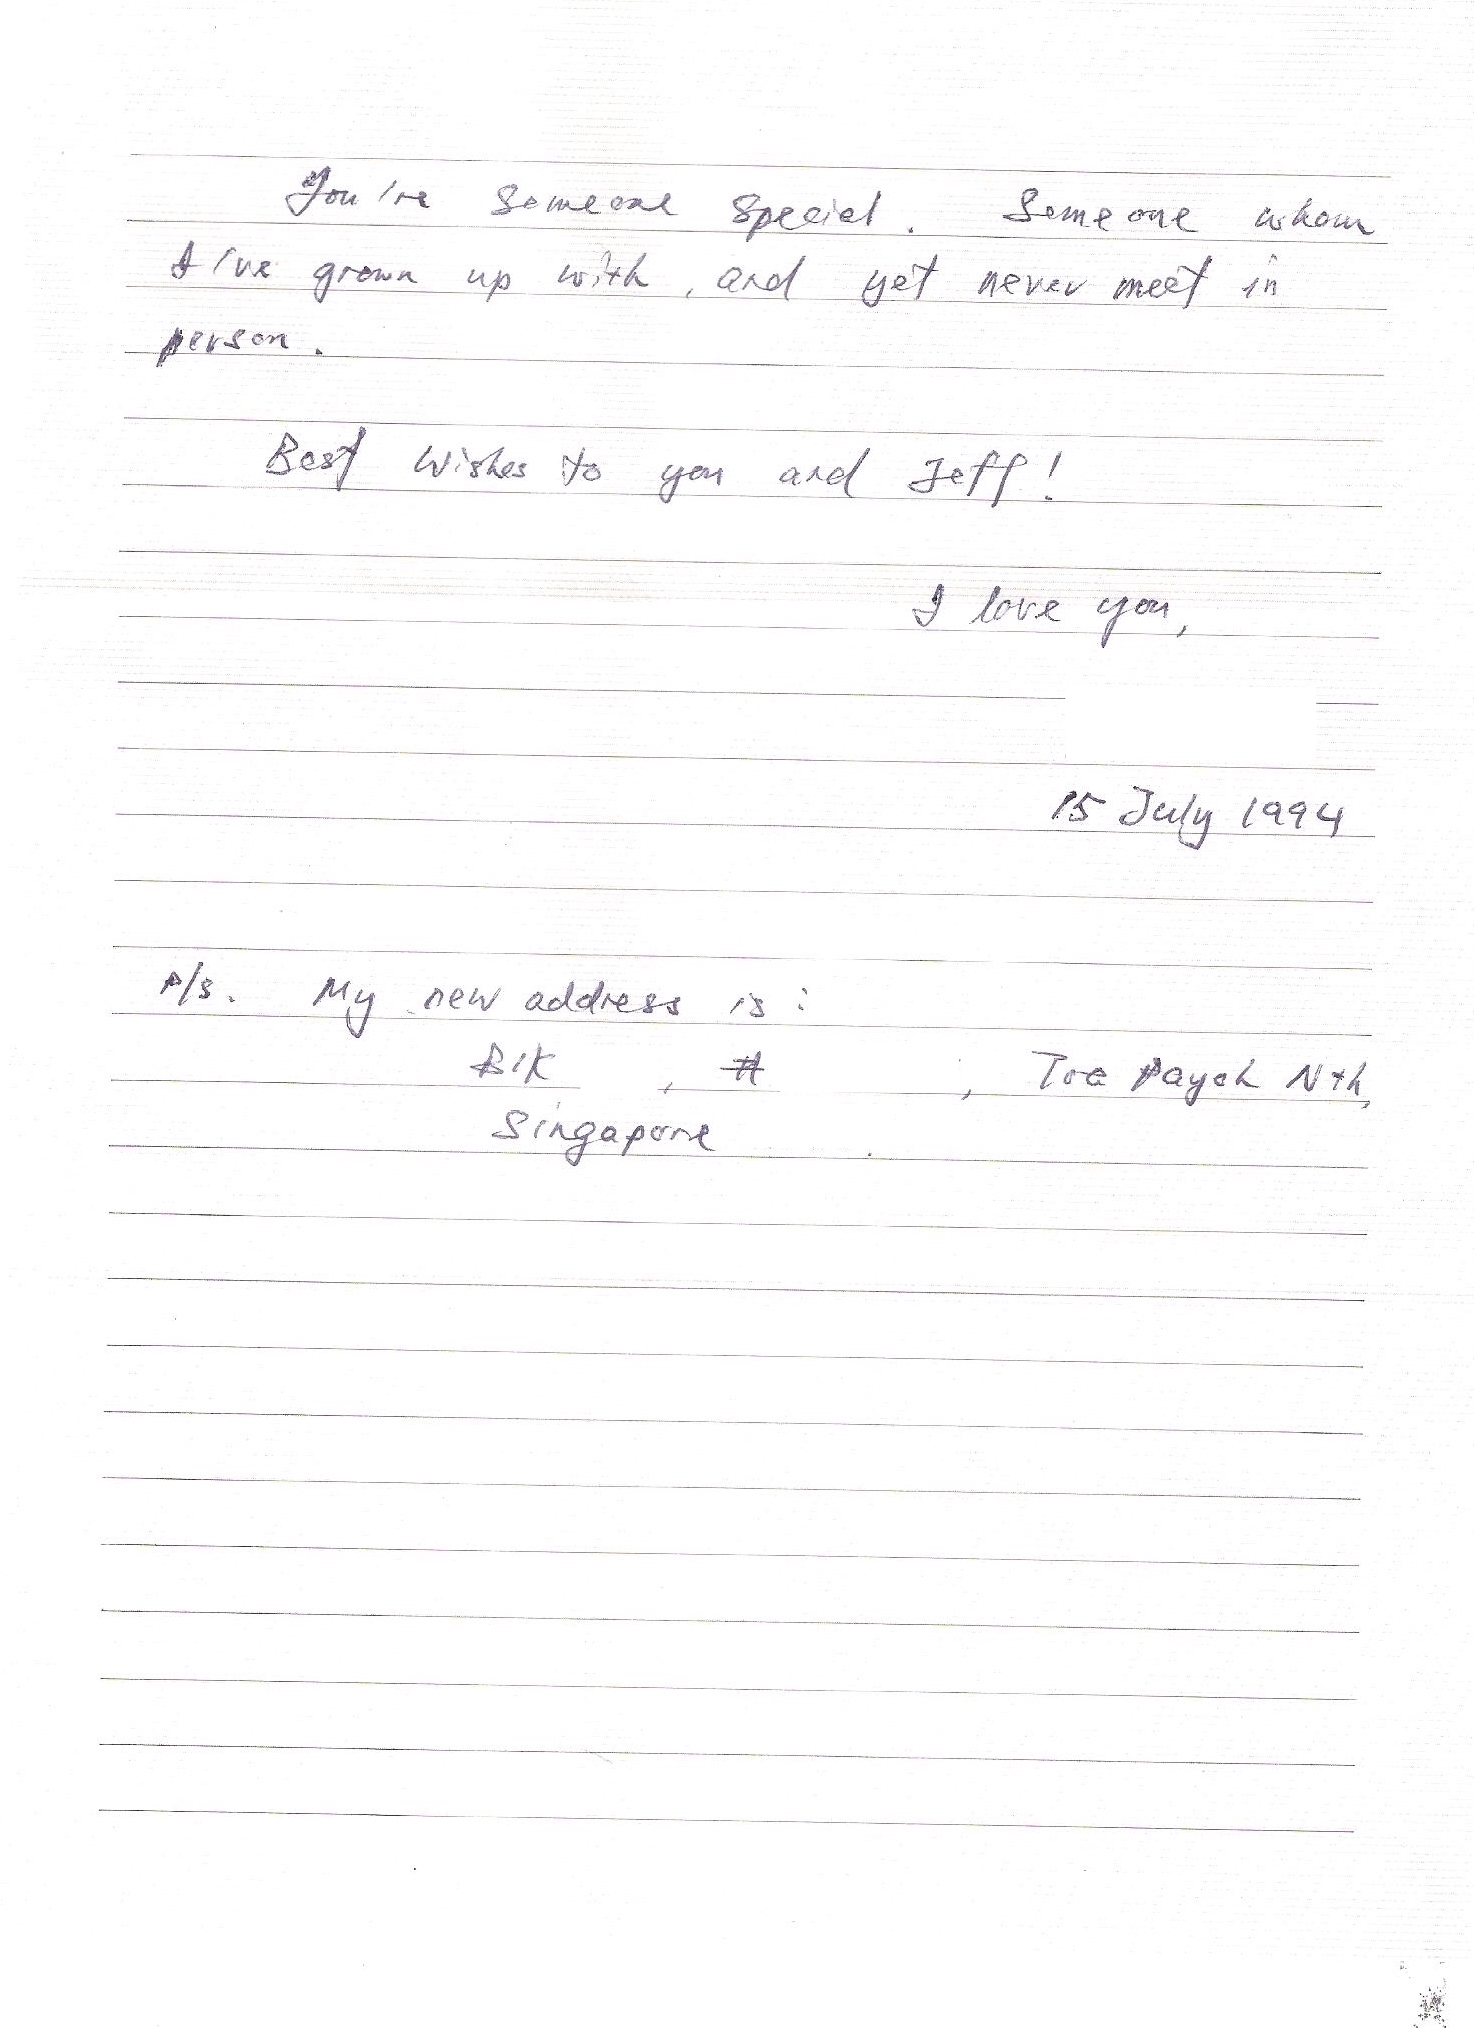 You're someone special. Someone whom
I've grown up with, and yet never meet in
person.
Best Wishes to you and Jeff!
I love you,
15 July 1994
P/S. My new address is:
Blk , # , Toa Payoh Nth,
Singapore .